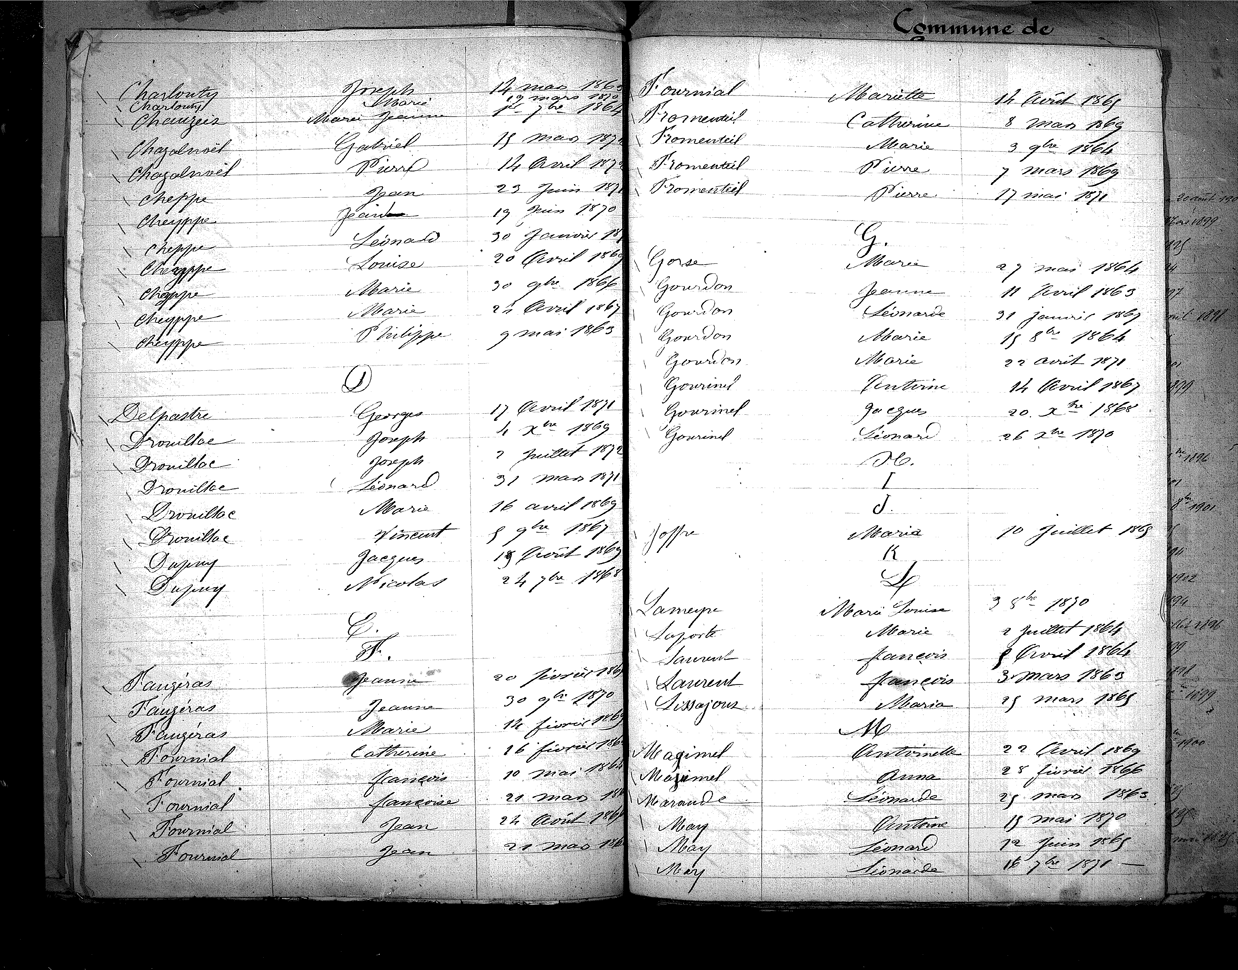 Commune de
Charlouty Joseph 14 mars 1863
Charlouty Marie 12 mars 1870
Chauzeis Marie Jeanne 1er 7bre 1864
Chazalnoël Gabriel 15 mars 1872
Chazalnoël Pierre 14 Avril 1872
Cheppe Jean 23 Juin 1871
Cheyppe Jean 19 Juin 1870
Cheppe Léonard 30 Janvier
Cheyppe Louise 20 Avril 1869
Cheyppe Marie 30 9bre 1866
Cheyppe Marie 22 Avril 1867
Cheyppe Philippe 9 mai 1863
D
Delpastre Georges 17 Avril 1871
Drouillac Joseph 4 Xbre 1869
Drouillac Joseph 2 Juillet 1872
Drouillac Léonard 31 mars 1871
Drouillac Marie 16 avril 1869
Drouillac Vincent 5 9bre 1867
Dupuy Jacques 15 Août 1869
Dupuy Nicolas 24 7bre 1868
E.
F.
Faugéras Jeanne 20 février
Faugéras Jeanne 30 9bre 1870
Faugéras Marie 14 février
Fournial Catherine 16 février
Fournial françois 10 mai 1864
Fournial françoise 21 mars
Fournial Jean 24 Août
Fournial Jean 21 mars
Fournial Mariette 14 Août 1865
Fromenteil Catherine 8 mars 1869
Fromenteil Marie 3 9bre 1864
Fromenteil Pierre 7 mars 1869
Fromenteil Pierre 17 mai 1871
G.
Gorse Marie 27 mai 1864
Gourdon Jeanne 11 Avril 1863
Gourdon Léonarde 31 Janvier 1867
Gourdon Marie 15 8bre 1864
Gourdon Marie 22 avril 1871
Gourinel Antoine 14 Avril 1867
Gourinel Jacques 20 Xbre 1868
Gourinel Léonard 26 Xbre 1870
H.
I
J.
Joffre Marie 10 Juillet 1865
K
L
Lameyre Marie Louise 3 8bre 1870
Laporte Marie 2 Juillet 1864
Laurent françois 5 Avril 1864
Laurent françois 3 mars 1863
Lissajoux Maria 25 mars 1865
M
Mazimel Antoinette 22 Avril 1869
Mazimel Anna 28 février 1866
Maraude Léonarde 25 mars 1863
May Antoine 15 mai 1870
May Léonard 12 Juin 1865
May Léonarde 16 7bre 1871 —